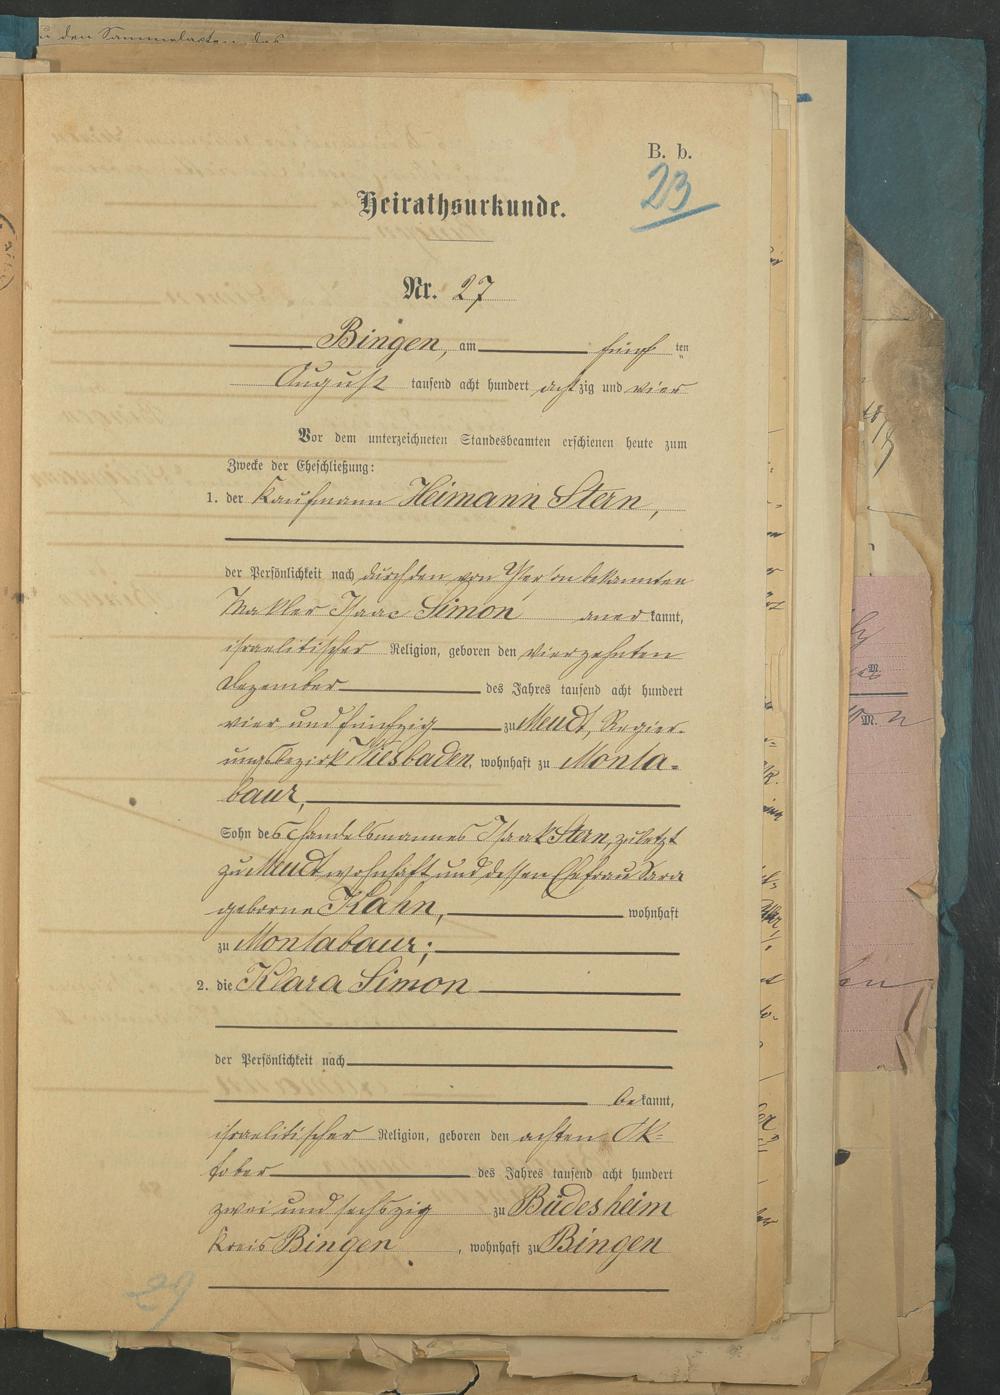 zu den Sammelakten des
B. b.
23
Heirathsurkunde.
Nr. 27
Bingen, am fünf ten
August tausend acht hundert achtzig und vier
Vor dem unterzeichneten Standesbeamten erschienen heute zum
Zwecke der Eheschließung:
1. der Kaufmann Heimann Stern,
der Persönlichkeit nach durch den von Person bekannten
Makler Isaac Simon anerkannt,
israelitischer Religion, geboren den vierzehnten
Dezember des Jahres tausend acht hundert
vier und fünfzig zu Meudt, Regier-
ungsbezirk Wiesbaden, wohnhaft zu Monta-
baur,
Sohn des Handelsmannes Isaak Stern, zuletzt
zu Meudt wohnhaft und dessen Ehefrau Sara
geborne Kahn, wohnhaft
zu Montabaur;
2. die Klara Simon
der Persönlichkeit nach
bekannt,
israelitischer Religion, geboren den achten Ok-
tober des Jahres tausend acht hundert
zwei und sechszig zu Büdesheim
Kreis Bingen, wohnhaft zu Bingen